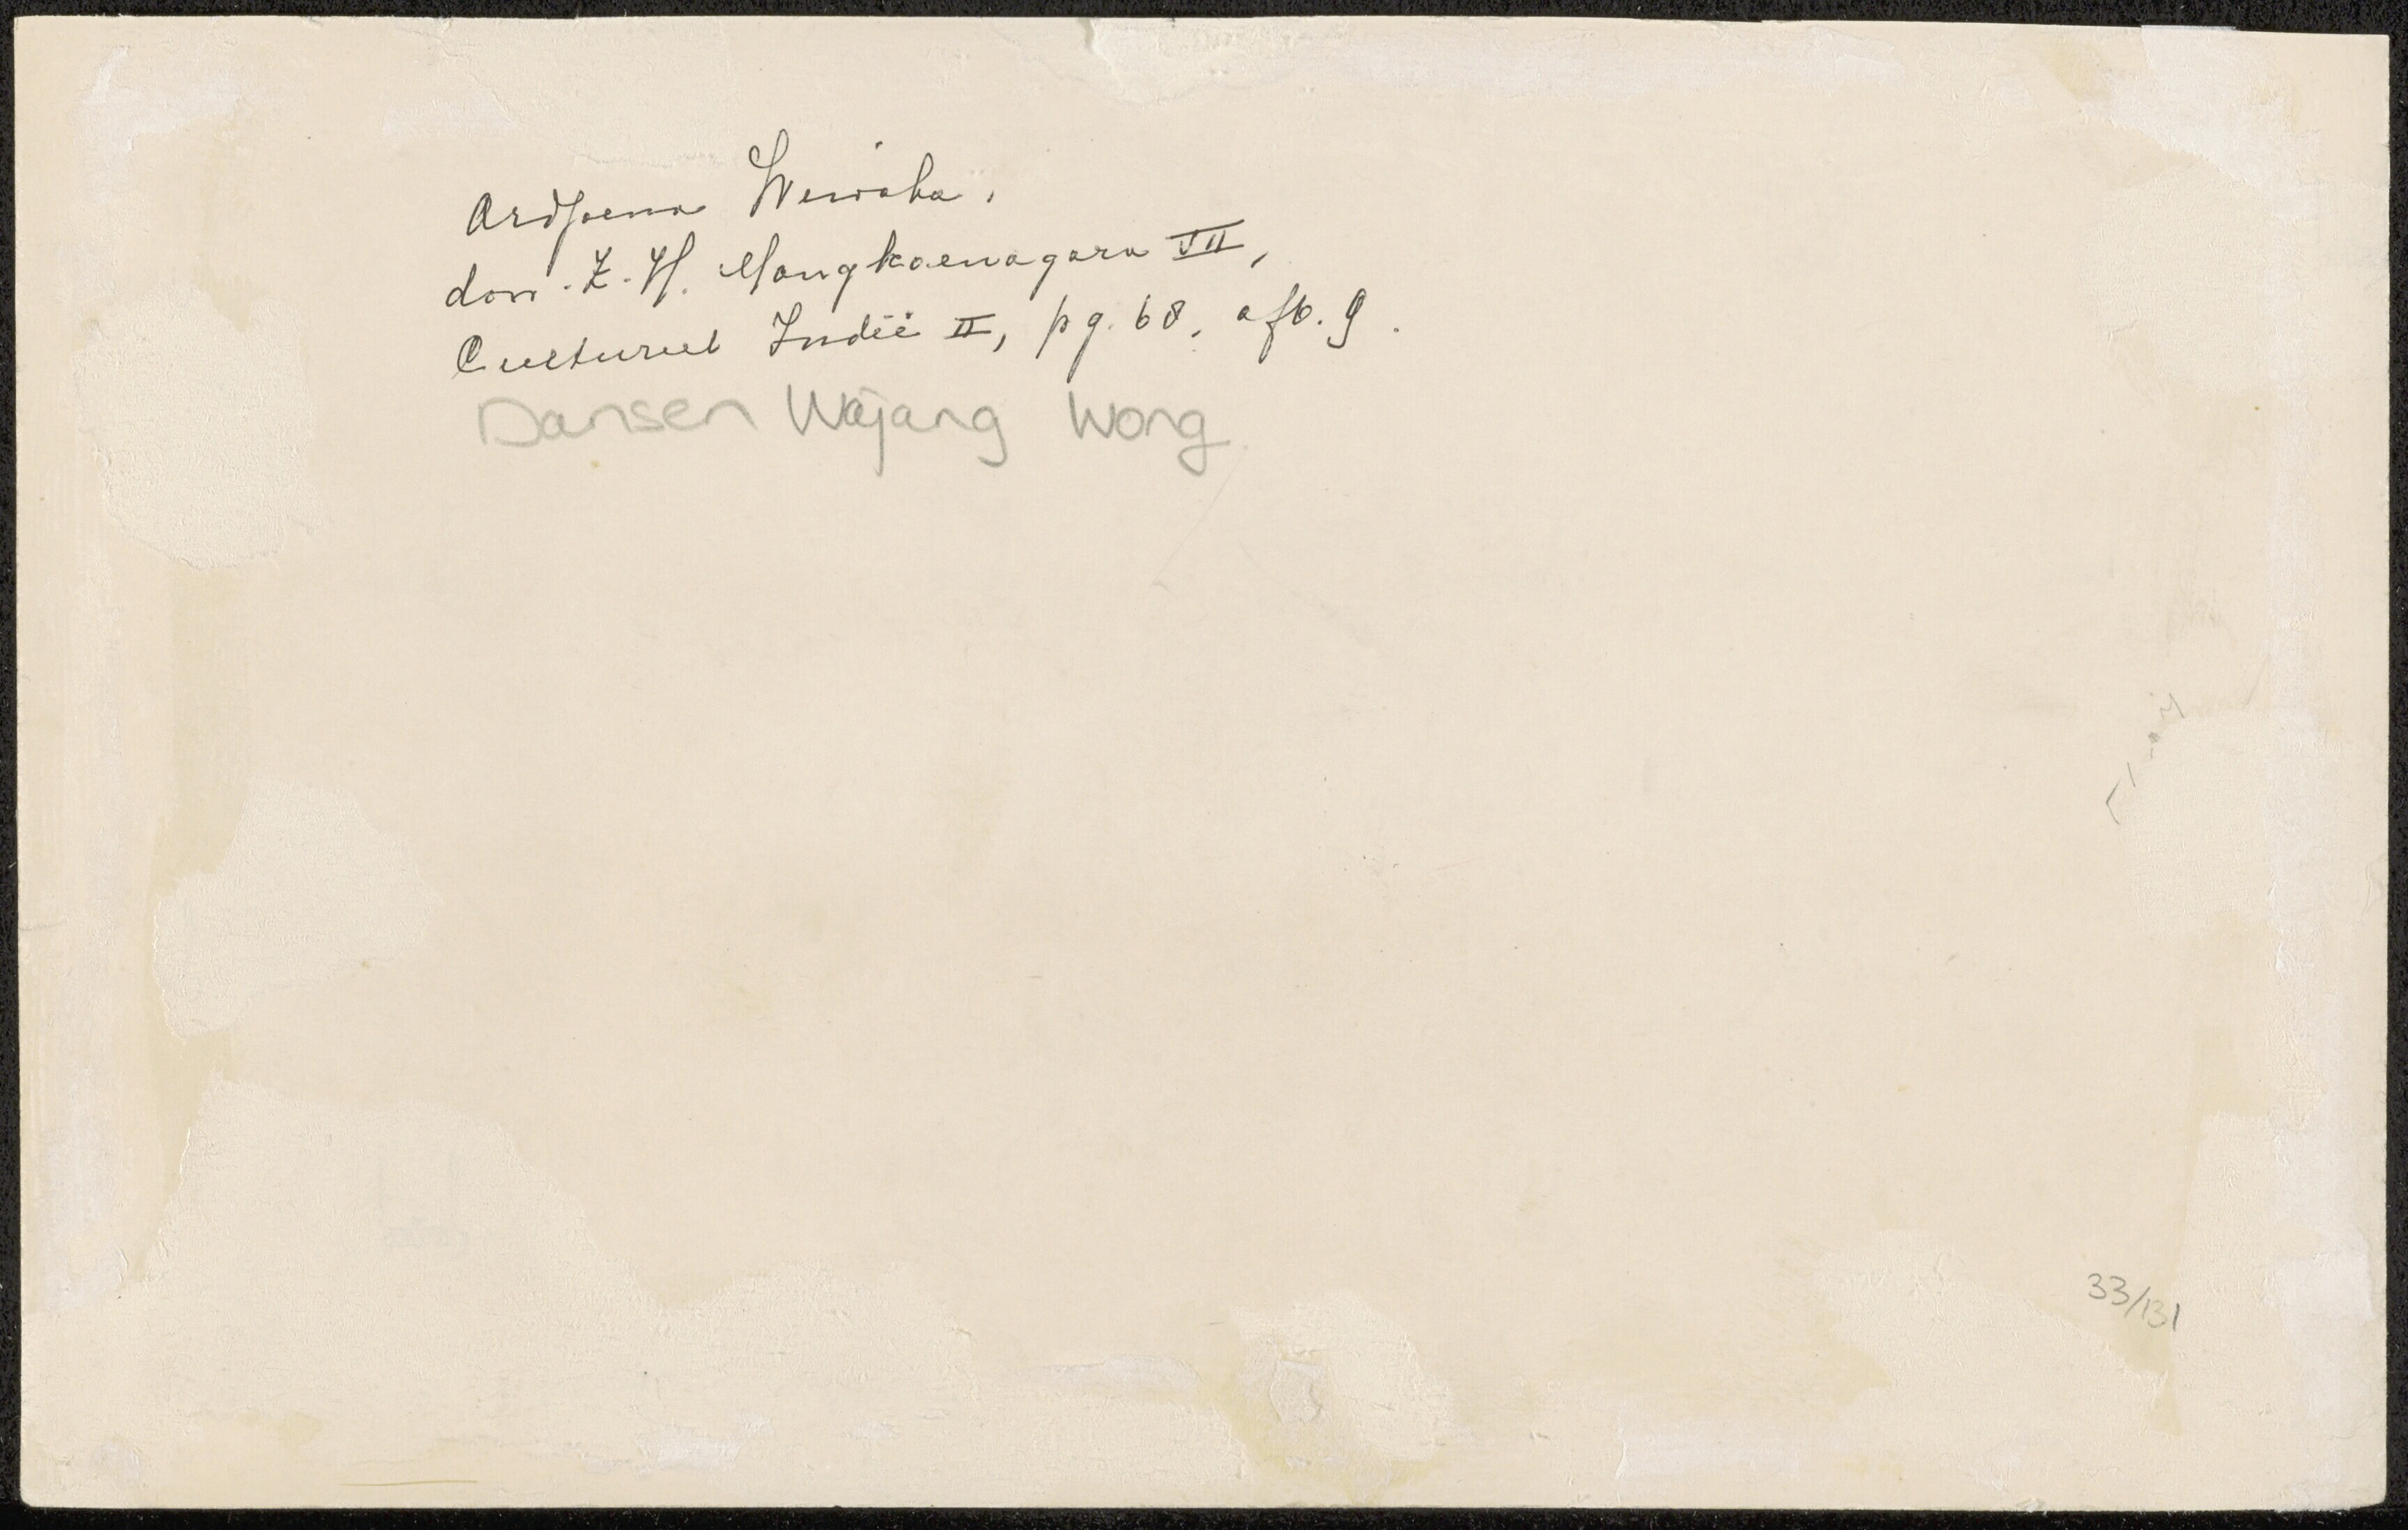 Ardjoena Wiwaha.
don. Z. H. Mangkoenagara VII,
Cultureel Indië II, pg. 68, afb. 9.
Dansen Wajang Wong
33/131